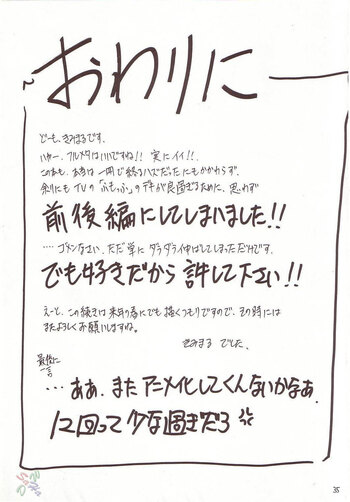 おわりに
どーも、きみまるです。
いやー、フルメタはいいですね!! 実にイイ!!
この本も、本当は一冊で終るハズだったにもかかわらず、
余りにもTVの「ふもっふ」のデキが良過ぎるために、思わず
前後編にしてしまいました!!
‥‥ゴメンなさい、ただ単にダラダラ引き伸ばしてしまっただけです。
でも好きだから許して下さい!!
えーと、この続きは来年の春にでも描くつもりですので、その時には
またよろしくお願いしますね。
きみまる でした。
最後に
一言
‥‥ああ、またアニメ化してくんないかなぁ。
12回って少な過ぎだろ
35